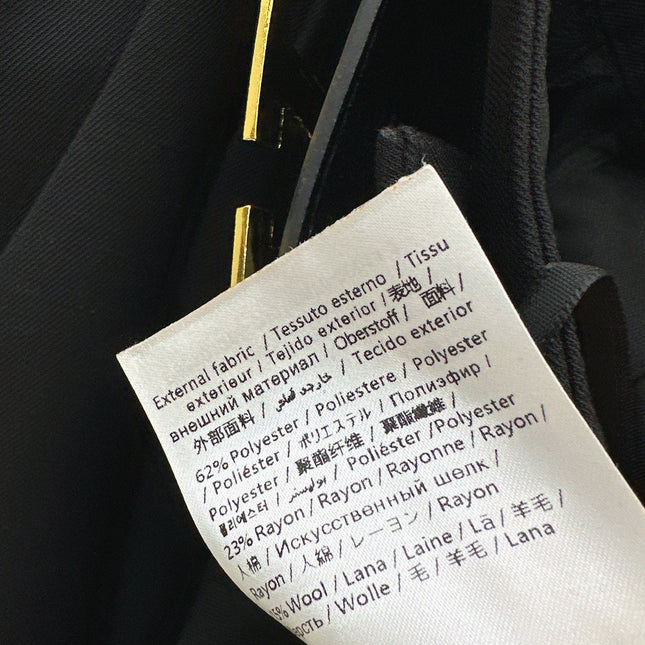 External fabric / Tessuto esterno / Tissu
exterieur / Tejido exterior / 表地 /
внешний материал / Oberstoff / 面料 /
外部面料 / خارجي / Tecido exterior
62% Polyester / Poliestere / Polyester
/ Poliéster / ポリエステル / Полиэфир /
Polyester / 聚酯纤维 / 聚酯纤维 /
폴리에스터 / بوليستر / Poliéster /Polyester
23% Rayon / Rayon / Rayonne / Rayon /
人棉 / Искусственный шелк /
Rayon / 人綿 / レーヨン / Rayon
5% Wool / Lana / Laine / Lã / 羊毛 /
ерсть / Wolle / 毛 / 羊毛 / Lana